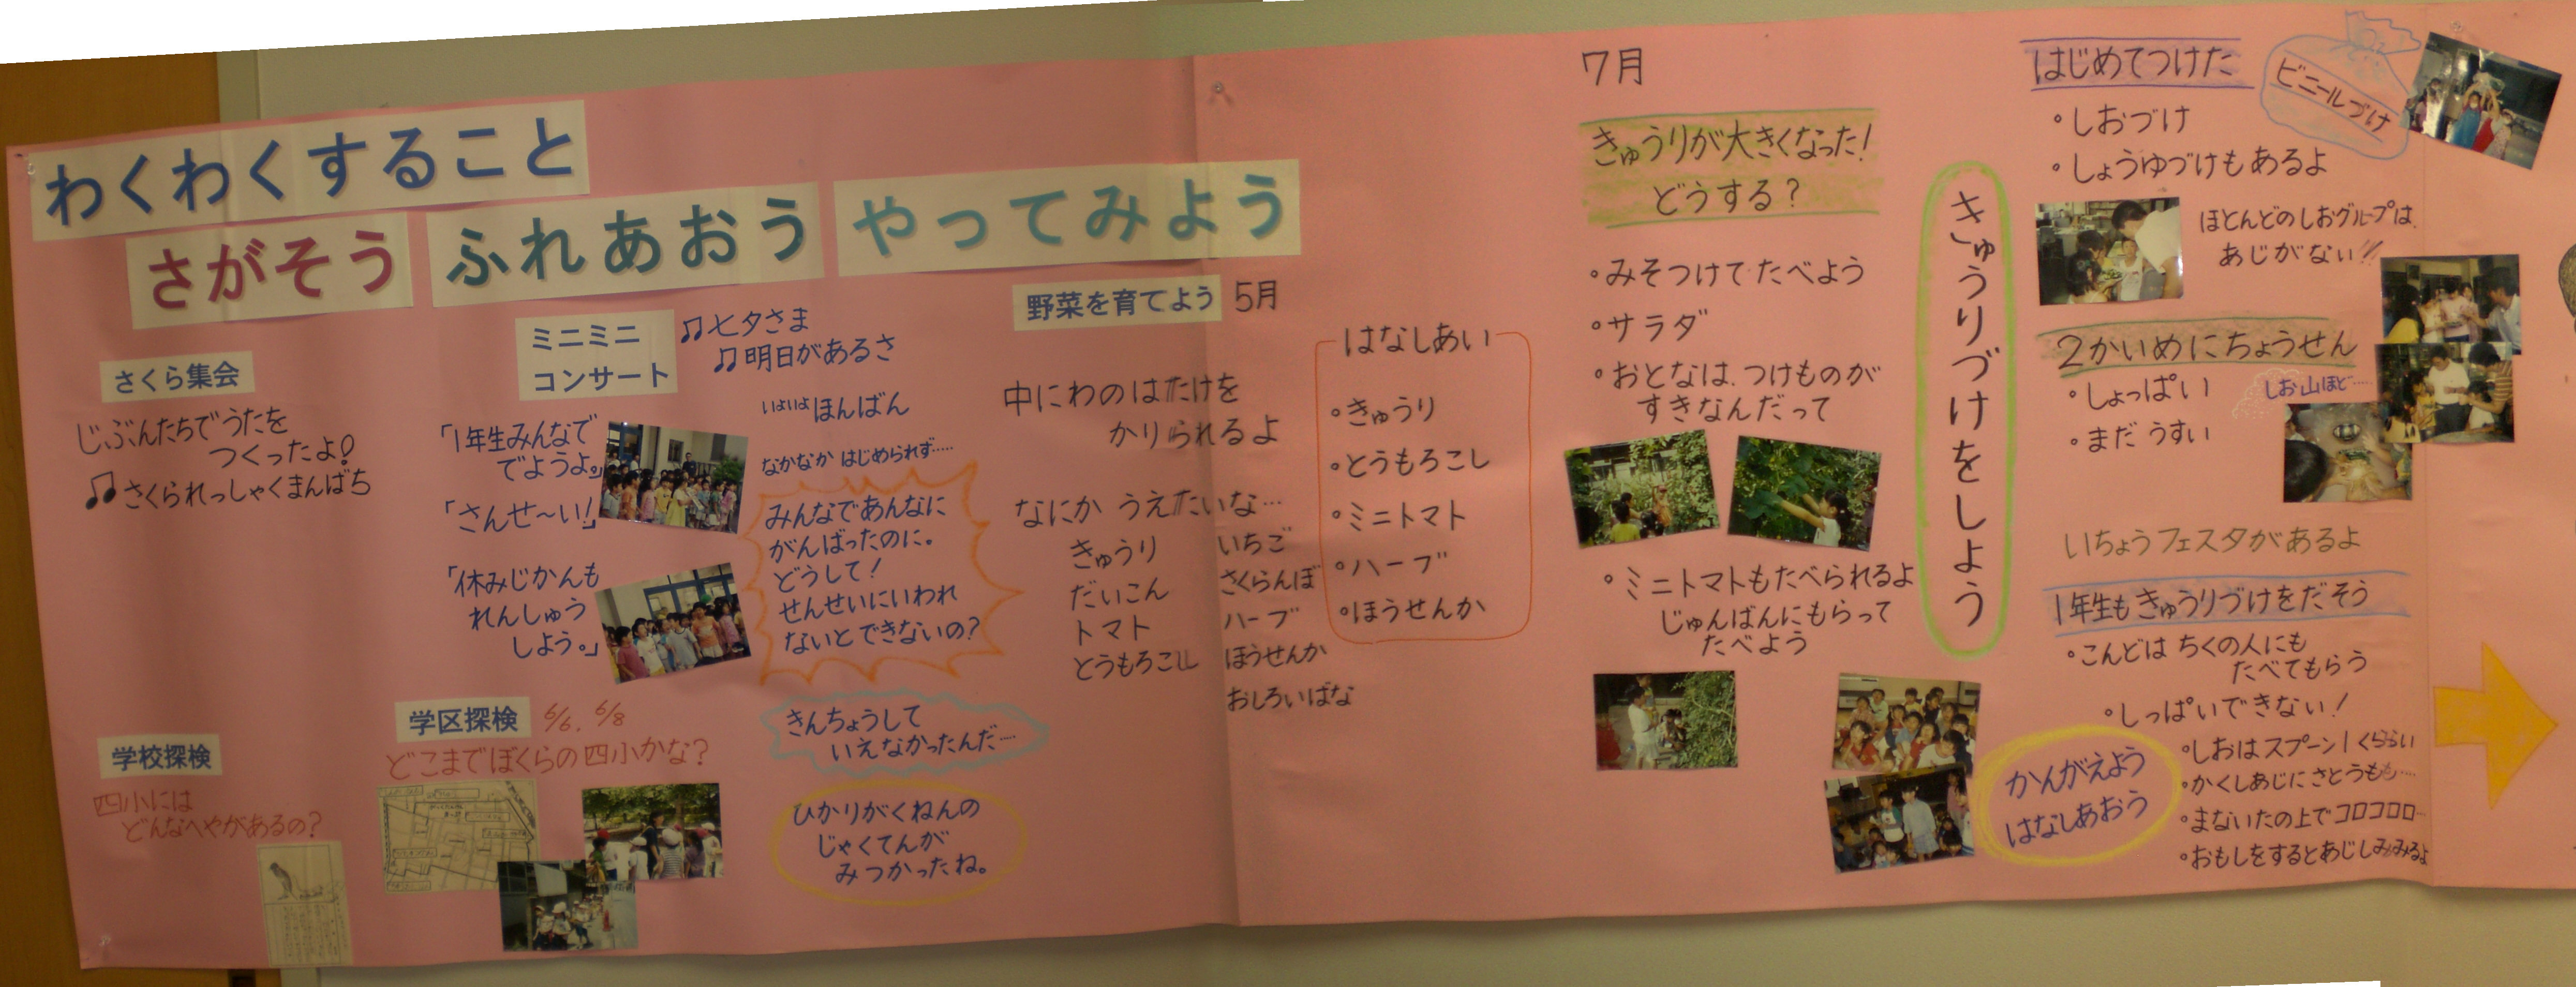 わくわくすること
さがそう ふれあおう やってみよう
さくら集会
じぶんたちでうたを
つくったよ!
♫さくられっしゃくまんばち
ミニミニ
コンサート
♫七夕さま
♫明日があるさ
「1年生みんなで
でようよ。」
「さんせ〜い!」
「休みじかんも
れんしゅう
しよう。」
いよいよほんばん
なかなか はじめられず……
みんなであんなに
がんばったのに。
どうして!
せんせいにいわれ
ないとできないの?
きんちょうして
いえなかったんだ…
ひかりがくねんの
じゃくてんが
みつかったね。
学校探検
四小には
どんなへやがあるの?
学区探検 6/6、6/8
どこまでぼくらの四小かな?
野菜を育てよう 5月
中にわのはたけを
かりられるよ
なにか うえたいな…
きゅうり
だいこん
トマト
とうもろこし
いちご
さくらんぼ
ハーブ
ほうせんか
おしろいばな
はなしあい
・きゅうり
・とうもろこし
・ミニトマト
・ハーブ
・ほうせんか
7月
きゅうりが大きくなった!
どうする?
・みそつけてたべよう
・サラダ
・おとなは、つけものが
すきなんだって
・ミニトマトもたべられるよ
じゅんばんにもらって
たべよう
きゅうりづけをしよう
はじめてつけた
・しおづけ
・しょうゆづけもあるよ
ビニールづけ
ほとんどのしおグループは、
あじがない!!
2かいめにちょうせん
・しょっぱい
・まだ うすい
しお山ほど……
いちょうフェスタがあるよ
1年生もきゅうりづけをだそう
・こんどは ちくの人にも
たべてもらう
・しっぱいできない!
かんがえよう
はなしあおう
・しおはスプーン1くらい
・かくしあじにさとうも……
・まないたの上でコロコロ…
・おもしをするとあじしみるよ